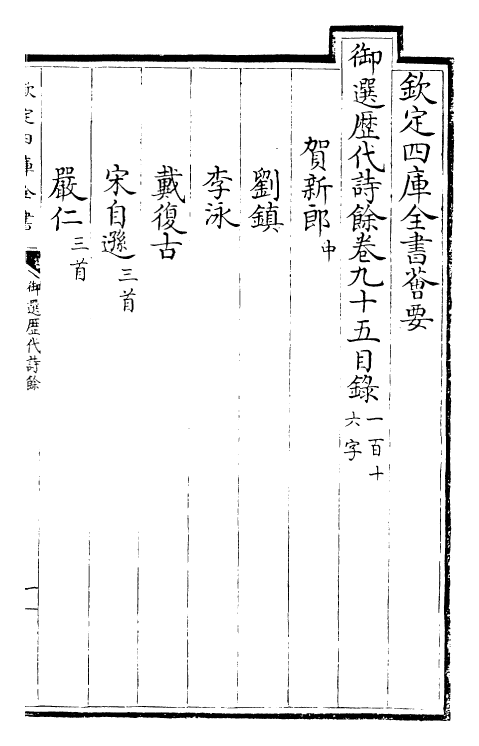 欽定四庫全書薈要
御選歷代詩餘卷九十五目錄一百十六字
賀新郎中
劉鎮
李泳
戴復古
宋自遜三首
嚴仁三首
欽定四庫全書
御選歷代詩餘
一